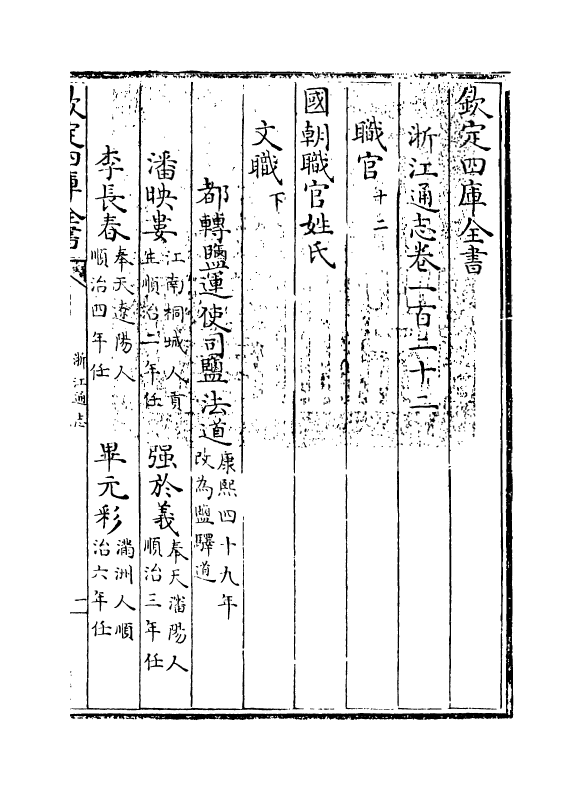 欽定四庫全書
浙江通志卷一百二十二
職官十二
國朝職官姓氏
文職下
都轉鹽運使司鹽法道康熙四十九年改為鹽驛道
潘映婁江南桐城人貢生順治二年任 强於義奉天瀋陽人順治三年任
李長春奉天遼陽人順治四年任 畢元彩滿洲人順治六年任
欽定四庫全書 浙江通志 一